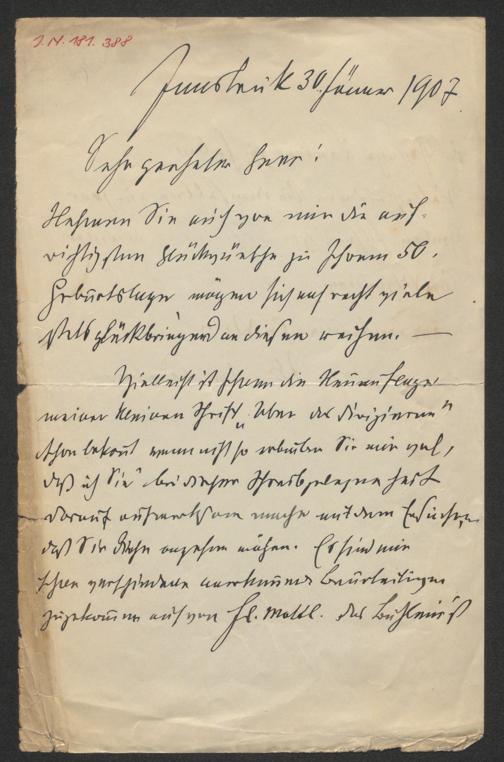 I.N. 181.388
Innsbruck 30. Jänner 1907
Sehr geehrter Herr!
Nehmen Sie auch von mir die auf-
richtigsten Glückwünsche zu Ihrem 50.
Geburtstage mögen sich auf recht viele
stets glückbringend an diesen reihen. —
Vielleicht ist Ihnen die Neuauflage
meiner kleinen Schrift „Über das Dirigieren“
schon bekannt wenn nicht so erlauben Sie mir wohl,
daß ich Sie bei dieser Gelegenheit
darauf aufmerksam mache mit dem Ersuchen
daß Sie diese ansehen mögen. Es sind mir
schon verschiedene anerkennende Beurteilungen
zugekommen auch von H. Mottl. das